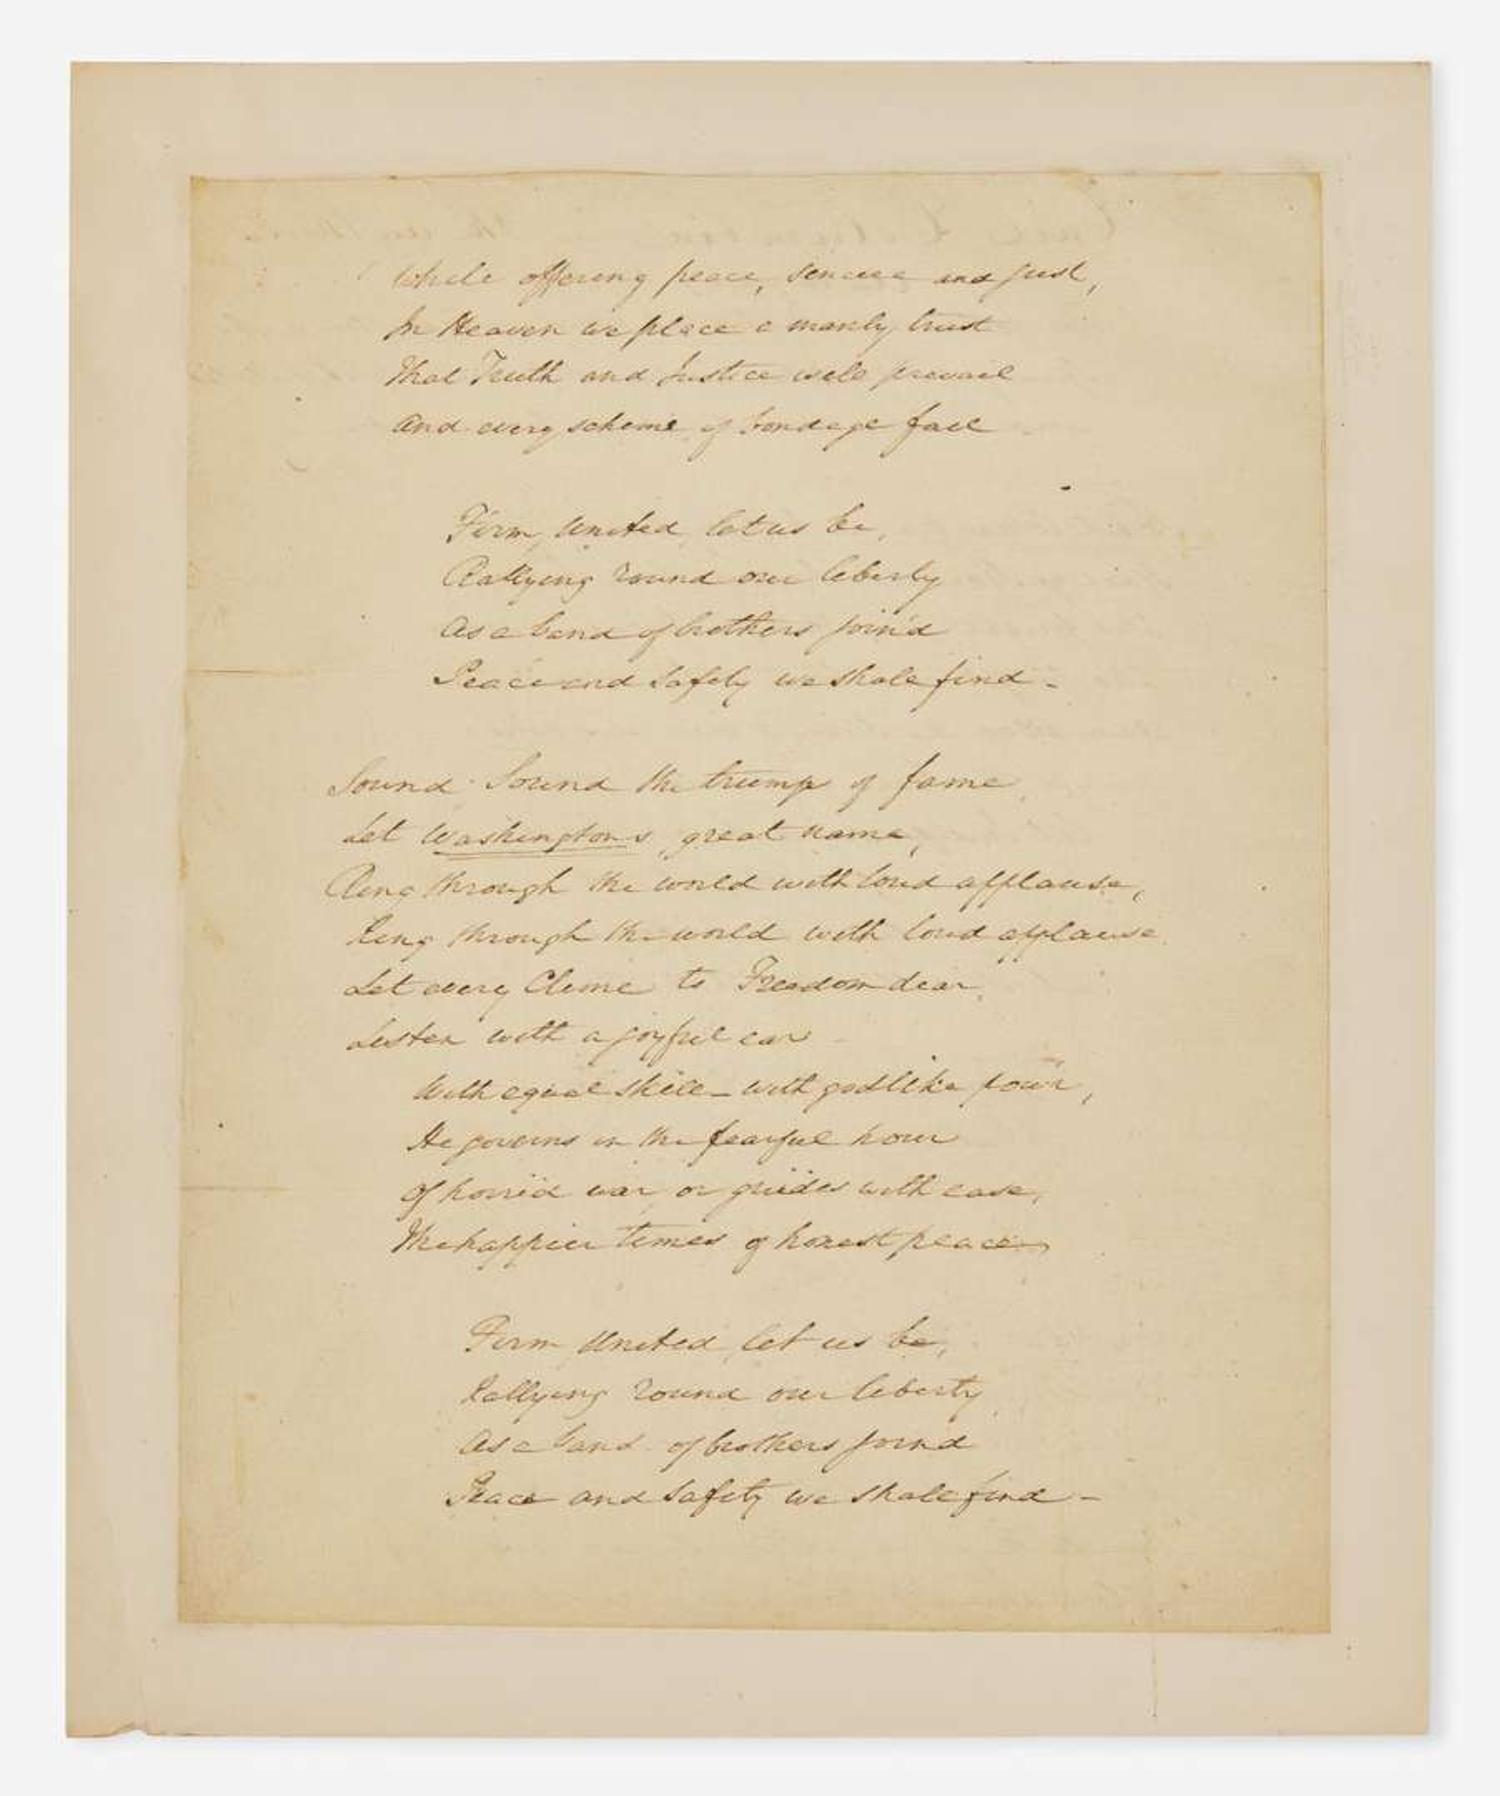 While offering peace, sincere and just,
In Heaven we place a manly trust
That Truth and Justice will prevail
And every scheme of bondage fail
Firm, United, let us be,
Rallying round our liberty
As a band of brothers join'd
Peace and safety we shall find -
Sound Sound the trump of fame
Let Washingtons great name,
Ring through the world with loud applause,
Ring through the world with loud applause
Let every Clime to Freedom dear
Listen with a joyful ear
With equal skill - with godlike pow'r,
He governs in the fearful hour
Of horrid war, or guides with ease,
The happier times of honest peace
Firm United let us be,
Rallying round our liberty
As a band of brothers joind
Peace and safety we shall find -